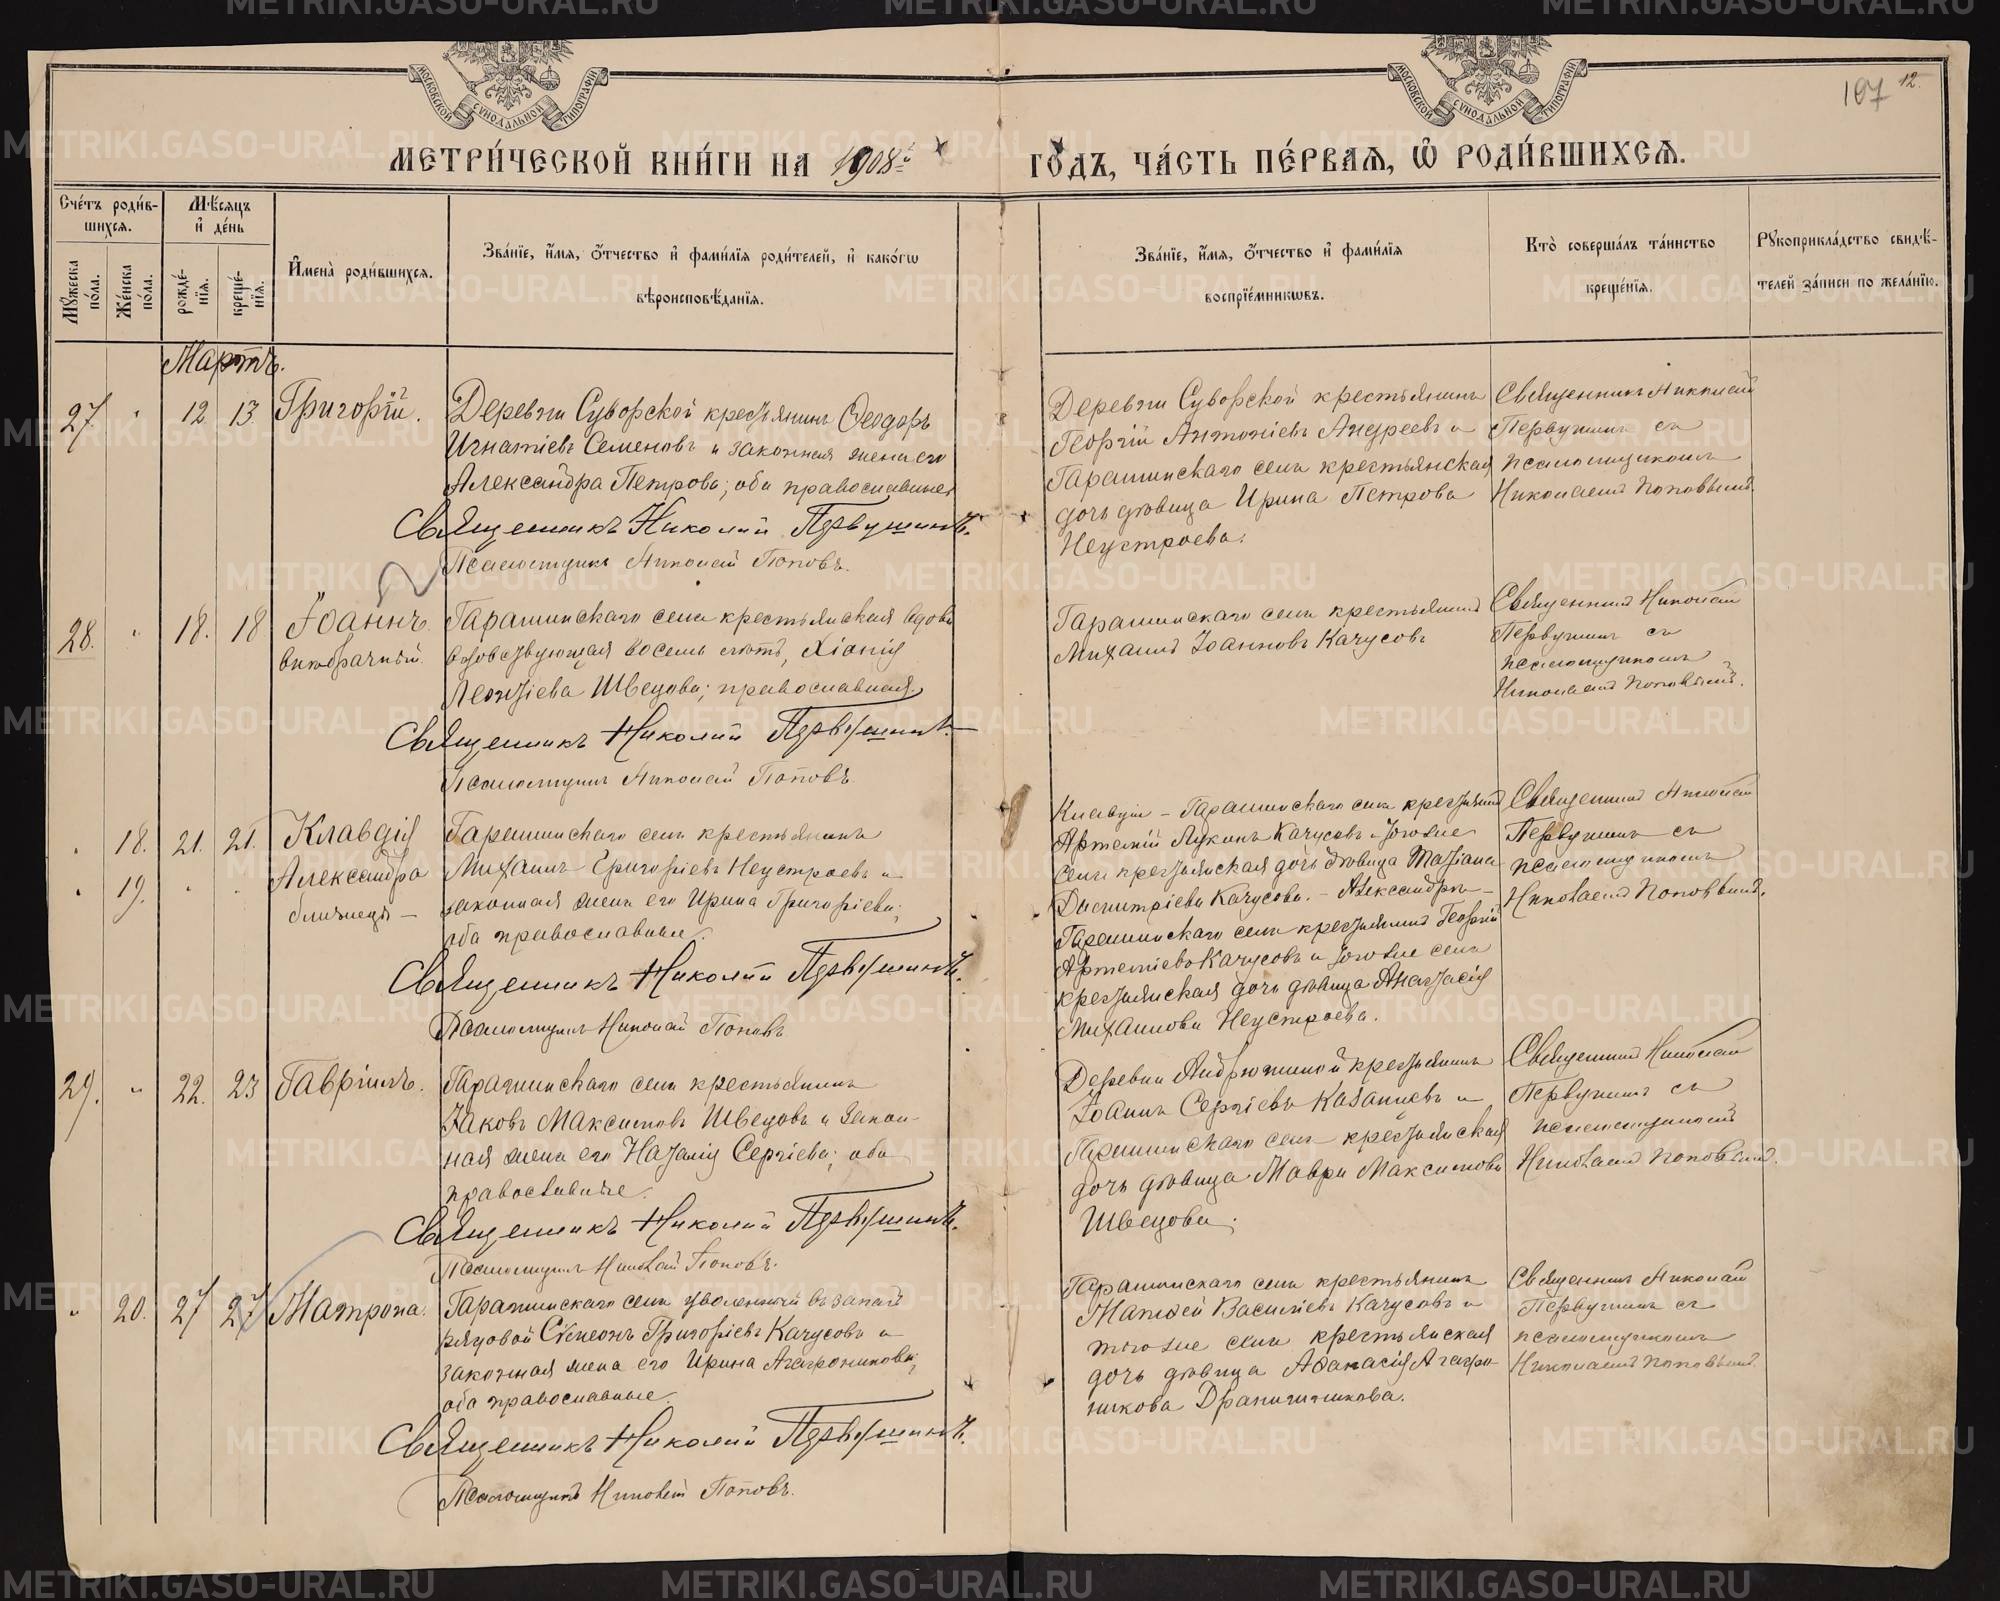 МОСКОВСКОЙ СѴНОДАЛЬНОЙ ТИПОГРАФІИ
МОСКОВСКОЙ СѴНОДАЛЬНОЙ ТИПОГРАФІИ
107 12.
МЕТРИ́ЧЕСКОЙ КНИ́ГИ НА 1908й
ГО́ДЪ, ЧА́СТЬ ПЕ́РВАѦ, Ѡ҆ РОДИ́ВШИХСѦ.
Сче́тъ роди́в-
шихсѧ.
Мꙋ́жеска по́ла.
Же́нска по́ла.
Мѣ́сѧцъ
и҆ де́нь
рожде́-
нїѧ.
креще́-
нїѧ.
И҆мена̀ роди́вшихсѧ.
Зва́нїе, и҆́мѧ, ѻ҆́тчество и҆ фами́лїѧ роди́телей, и҆ како́гѡ
вѣроисповѣ́данїѧ.
Зва́нїе, и҆́мѧ, ѻ҆́тчество и҆ фами́лїѧ
воспрїе́мникѡвъ.
Кто̀ соверша́лъ та́инство
креще́нїѧ.
Рꙋкоприкла́дство свидѣ́-
телей за́писи по жела́нїю.
Мартъ.
27. " 12 13. Григорій.
Деревни Суворской крестьянинъ Ѳеодоръ
Игнатіевъ Семеновъ и законная жена его
Александра Петрова; оба православные
Священникъ Николай Первушинъ.
Псаломщикъ Николай Поповъ.
Деревни Суворской крестьянинъ
Георгій Антоніевъ Андреевъ и
Гарашинскаго села крестьянская
дочь дѣвица Ирина Петрова
Неустроева.
Священникъ Николай
Первушинъ съ
псаломщикомъ
Николаемъ Поповымъ.
28. " 18. 18 Іоаннъ
внѣбрачный.
Гарашинскаго села крестьянская вдова
вдовствующая восемь лѣтъ, Хіонія
Леонтіева Швецова; православная.
Священникъ Николай Первушинъ.
Псаломщикъ Николай Поповъ.
Гарашинскаго села крестьянинъ
Михаилъ Іоанновъ Качусовъ
Священникъ Николай
Первушинъ съ
псаломщикомъ
Николаемъ Поповымъ.
" 18. 21. 21. Клавдія
" 19. " " Александра
близнецы —
Гарашинскаго села крестьянинъ
Михаилъ Григоріевъ Неустроевъ и
законная жена его Ирина Григоріева;
оба православные.
Священникъ Николай Первушинъ.
Псаломщикъ Николай Поповъ
Клавдіи – Гарашинскаго села крестьянинъ
Артемій Лукинъ Качусовъ и того же
села крестьянская дочь дѣвица Татіана
Димитріева Качусова. – Александры –
Гарашинскаго села крестьянинъ Георгій
Артеміевъ Качусовъ и того же села
крестьянская дочь дѣвица Анастасія
Михаилова Неустроева.
Священникъ Николай
Первушинъ съ
псаломщикомъ
Николаемъ Поповымъ.
29. " 22. 23 Гавріилъ.
Гарашинскаго села крестьянинъ
Іаковъ Максимовъ Швецовъ и закон-
ная жена его Наталія Сергіева; оба
православные.
Священникъ Николай Первушинъ.
Псаломщикъ Николай Поповъ.
Деревни Андрюшиной крестьянинъ
Іоаннъ Сергіевъ Казанцевъ и
Гарашинскаго села крестьянская
дочь дѣвица Мавра Максимова
Швецова.
Священникъ Николай
Первушинъ съ
псаломщикомъ
Николаемъ Поповымъ.
" 20. 27 27 Матрона.
Гарашинскаго села уволенный въ запасъ
рядовой Симеонъ Григоріевъ Качусовъ и
законная жена его Ирина Агафоникова;
оба православные.
Священникъ Николай Первушинъ.
Псаломщикъ Николай Поповъ.
Гарашинскаго села крестьянинъ
Матѳей Василіевъ Качусовъ и
того же села крестьянская
дочь дѣвица Аѳанасія Агафо-
никова Драничникова.
Священникъ Николай
Первушинъ съ
псаломщикомъ
Николаемъ Поповымъ.
METRIKI.GASO-URAL.RU